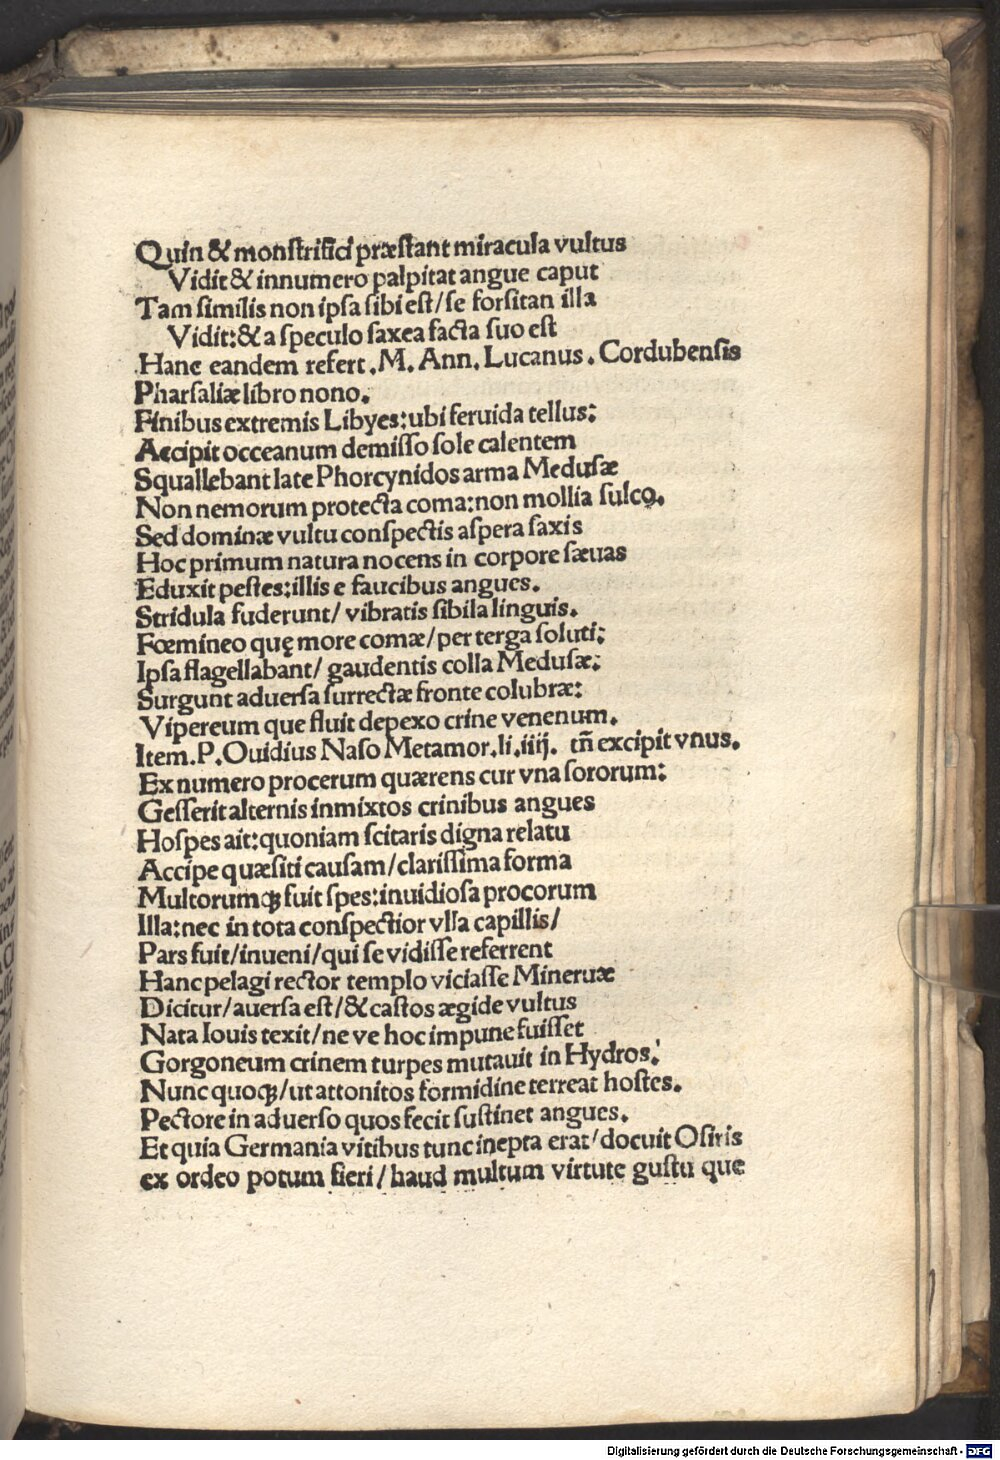 Quin & monſtrifici præſtant miracula vultus
Vidit & innumero palpitat angue caput
Tam ſimilis non ipſa ſibi eſt/ſe forſitan illa
Vidit:& a ſpeculo ſaxea facta ſuo eſt
Hanc eandem refert.M. Ann. Lucanus. Cordubenſis
Pharſaliæ libro nono.
Finibus extremis Libyes:ubi feruida tellus:
Accipit occeanum demiſſo ſole calentem
Squallebant late Phorcynidos arma Meduſæ
Non nemorum protecta coma:non mollia ſulco.
Sed dominæ vultu conſpectis aſpera ſaxis
Hoc primum natura nocens in corpore ſæuas
Eduxit peſtes:illis e faucibus angues.
Stridula fuderunt/ vibratis ſibila linguis.
Fœmineo quę more comæ/per terga ſoluti:
Ipſa flagellabant/ gaudentis colla Meduſæ:
Surgunt aduerſa ſurrectæ fronte colubræ:
Vipereum que fluit depexo crine venenum.
Item.P.Ouidius Naſo Metamor.li.iiij. tñ excipit vnus.
Ex numero procerum quærens cur vna ſororum:
Geſſerit alternis inmixtos crinibus angues
Hoſpes ait:quoniam ſcitaris digna relatu
Accipe quæſiti cauſam/clariſſima forma
Multorumqꝫ fuit ſpes:inuidioſa procorum
Illa:nec in tota conſpectior vlla capillis/
Pars fuit/inueni/qui ſe vidiſſe referrent
Hanc pelagi rector templo viciaſſe Mineruæ
Dicitur/auerſa eſt/& caſtos ægide vultus
Nata Iouis texit/ne ve hoc impune fuiſſet
Gorgoneum crinem turpes mutauit in Hydros.
Nunc quoqꝫ/ut attonitos formidine terreat hoſtes.
Pectore in aduerſo quos fecit ſuſtinet angues.
Et quia Germania vitibus tunc inepta erat/docuit Oſiris
ex ordeo potum fieri/haud multum virtute guſtu que
Digitalisierung gefördert durch die Deutsche Forschungsgemeinschaft - DFG